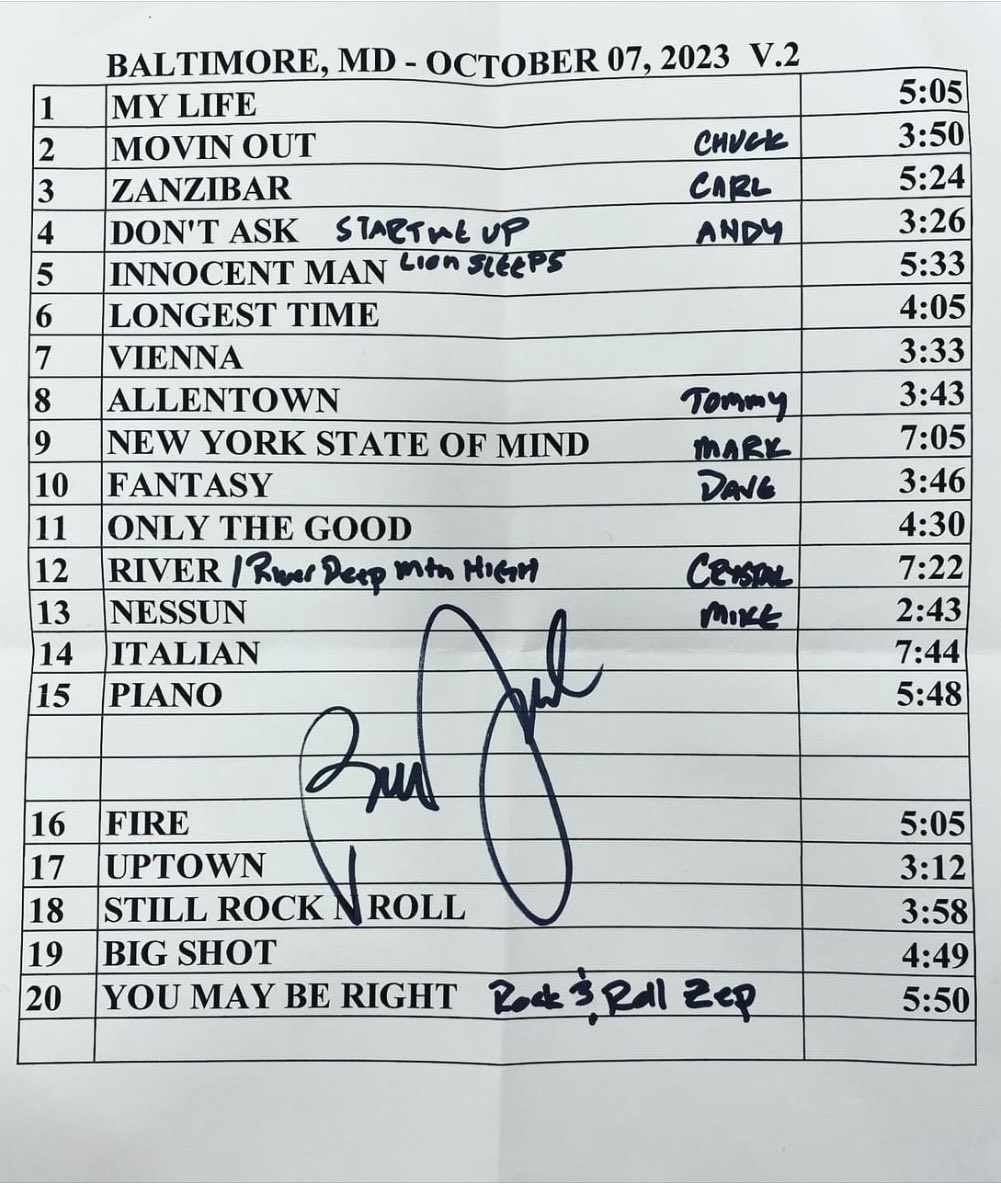 BALTIMORE, MD - OCTOBER 07, 2023 V.2
1 MY LIFE 5:05
2 MOVIN OUT CHUCK 3:50
3 ZANZIBAR CARL 5:24
4 DON'T ASK START ME UP ANDY 3:26
5 INNOCENT MAN LION SLEEPS 5:33
6 LONGEST TIME 4:05
7 VIENNA 3:33
8 ALLENTOWN TOMMY 3:43
9 NEW YORK STATE OF MIND MARK 7:05
10 FANTASY DAVE 3:46
11 ONLY THE GOOD 4:30
12 RIVER / River Deep mtn HIGH CRYSTAL 7:22
13 NESSUN MIKE 2:43
14 ITALIAN 7:44
15 PIANO 5:48
Bill Joel
16 FIRE 5:05
17 UPTOWN 3:12
18 STILL ROCK N ROLL 3:58
19 BIG SHOT 4:49
20 YOU MAY BE RIGHT Rock & Roll Zep 5:50